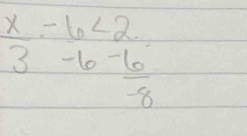 x/3 - 6 < 2
-6 -6
-8